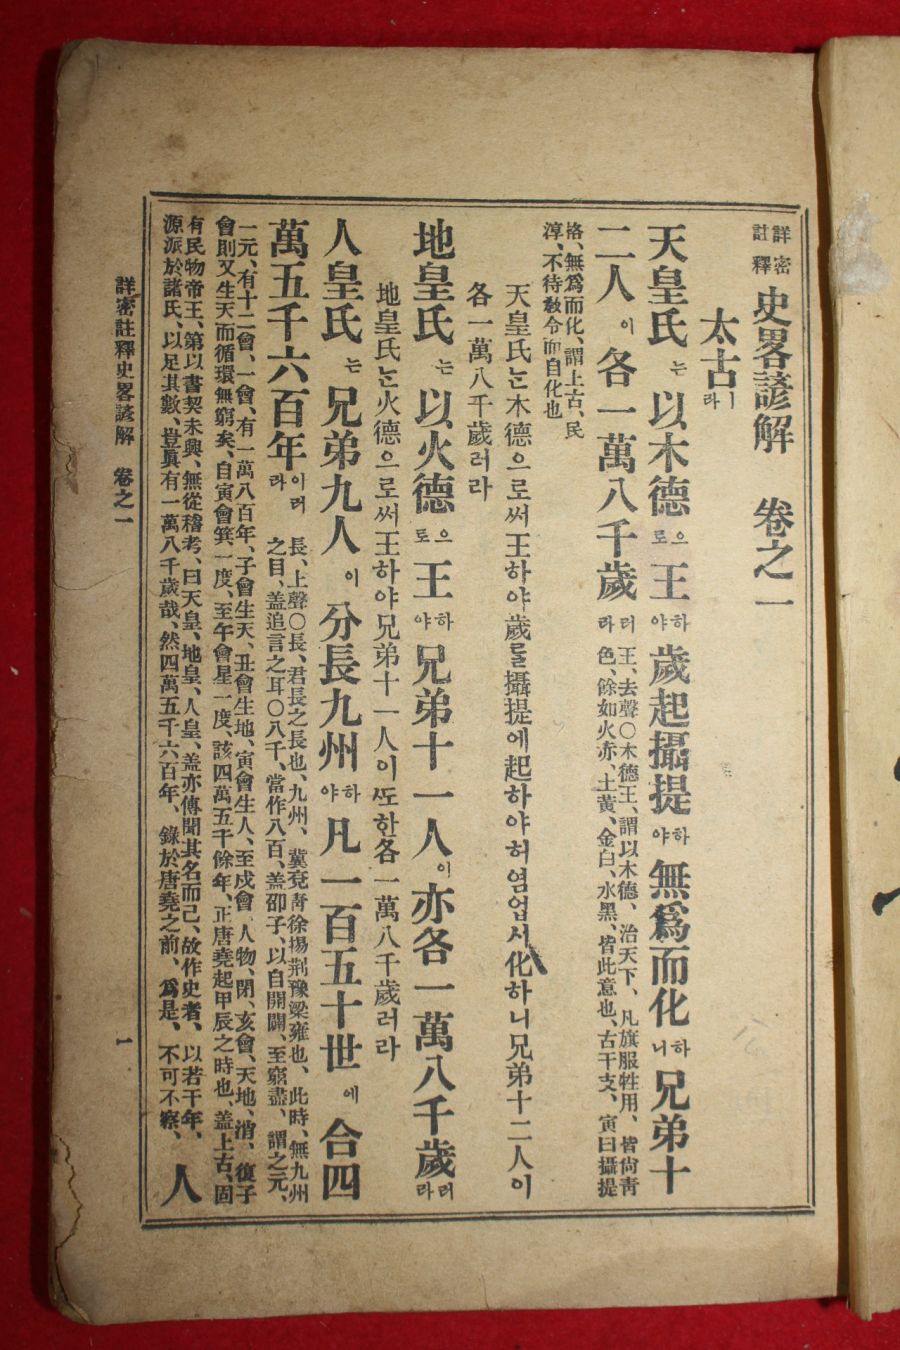 詳密註釋 史畧諺解 卷之一
太古ㅣ라
天皇氏는 以木德으로 王하야 歲起攝提하야 無爲而化하니 兄弟十
二人이 各一萬八千歲러라 王、去聲○木德王、謂以木德、治天下、凡旗服牲用、皆尙靑色、餘如火赤、土黃、金白、水黑、皆此意也、古干支、寅曰攝提
格、無爲而化、謂上古、民淳、不待敎令而自化也
天皇氏는木德으로써王하야歲를攝提에起하야허염업시化하니兄弟十二人이
各一萬八千歲러라
地皇氏는 以火德으로 王하야 兄弟十一人이 亦各一萬八千歲러라
地皇氏는火德으로써王하야兄弟十一人이ᄯᅩ한各一萬八千歲러라
人皇氏는 兄弟九人이 分長九州하야 凡一百五十世에 合四
萬五千六百年이러라 長、上聲○長、君長之長也、九州、冀兗靑徐揚荊豫梁雍也、此時、無九州之目、盖追言之耳○八千、當作八百、盖邵子、以自開闢、至窮盡、謂之元、
一元、有十二會、一會、有一萬八百年、子會生天、丑會生地、寅會生人、至戌會、人物、閉、亥會、天地、消、復子
會則又生天而循環無窮矣、自寅會箕一度、至午會星一度、該四萬五千餘年、正唐堯起甲辰之時也、盖上古、固
有民物帝王、第以書契未興、無從稽考、曰天皇、地皇、人皇、盖亦傳聞其名而己、故作史者、以若干年、
源派於諸氏、以足其數、豈眞有一萬八千歲哉、然四萬五千六百年、錄於唐堯之前、爲是、不可不察、 人
詳密註釋史畧諺解 卷之一 一